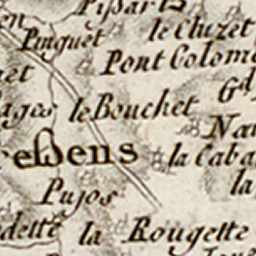 Pissarts
en
le Cluzet
Pinguet
Pont Colom
et
Gd
ages
le Bouchet
Na
eßens
la Caba
la
Pujos
dette
la Rougette